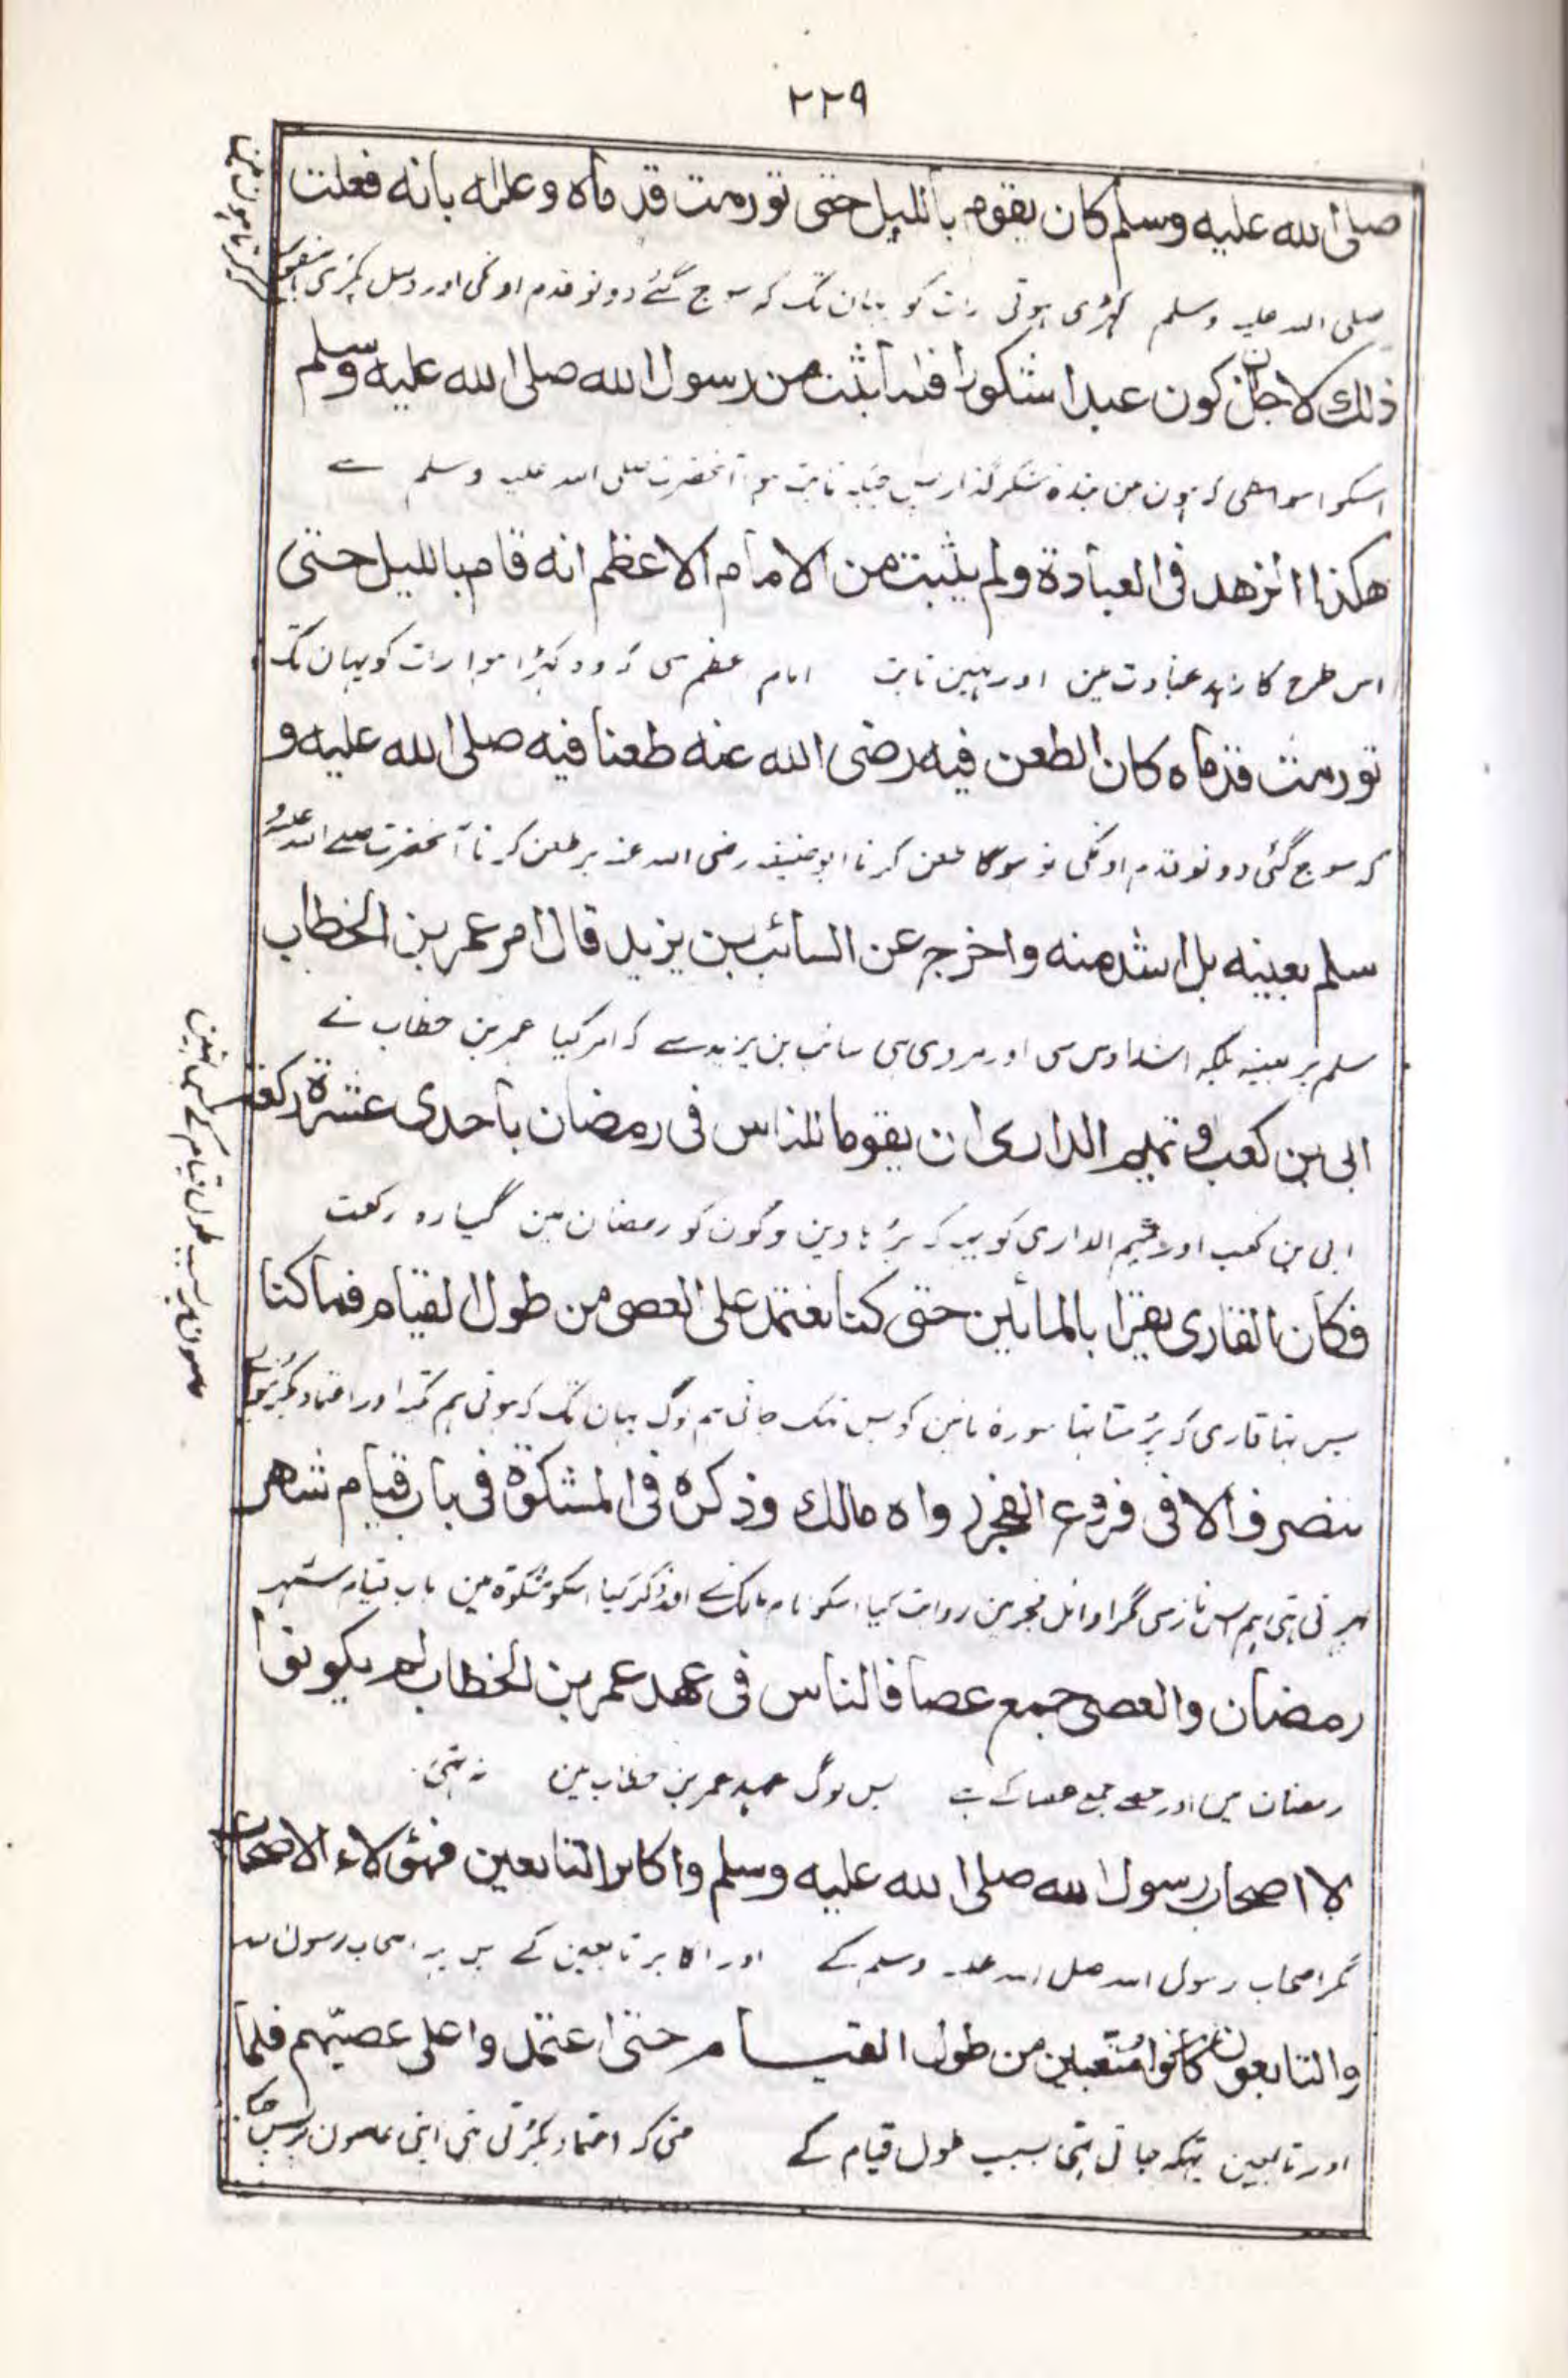 ٢٢٩
صلى الله عليه وسلم كان يقوم بالليل حتى تورمت قدماه وعلله بانه فعلت
صلی اللہ علیہ وسلم کہڑی ہوتی رات کو یہان تک کہ سوج گئے دونو قدم اونکی اور دلیل پکڑی
ذلك لاجل ان اكون عبدا شكورا فلما ثبت من رسول الله صلى الله عليه وسلم
اسکو اسواسطی کہ ہون من بندہ شکر گذار پس جبکہ ثابت ہوا آنحضرت صلی اللہ علیہ وسلم سے
هكذا الزهد فى العبادة ولم يثبت من الامام الاعظم انه قام بالليل حتى
اس طرح کا زہد عبادت مین اور نہین ثابت امام عظم سی کہ وہ کہڑا ہوا رات کو یہان تک
تورمت قدماه كان الطعن فيه رضى الله عنه طعنا فيه صلى الله عليه و
کہ سوج گئی دونو قدم اونکی تو ہوگا طعن کرنا ابو حنیفہ رضی اللہ عنہ پر طعن کرنا آنحضرت صلے اللہ علیہ و
سلم بعينه بل اشد منه واخرج عن السائب بن يزيد قال امر عمر بن الخطاب
سلم پر بعینہ بلکہ اشد اوس سی اور مروی ہی سائب بن یزید سے کہ امر کیا عمر بن خطاب نے
ابى بن كعب و تميم الدارى ان يقوما للناس فى رمضان باحدى عشرة ركعة
ابی بن کعب اور تمیم الداری کو یہ کہ پڑہا دین لوگون کو رمضان مین گیارہ رکعت
فكان القارى يقرا بالمائين حتى كنا نعتمد على العصى من طول القيام فما كنا
پس تہا قاری کہ پڑہتا تہا سورہ مائین کو پس تہک جاتی ہم لوگ یہان تک کہ ہوتی ہم تکیہ اور اعتماد
ننصرف الا فى فروع الفجر رواه مالك وذكره فى المشكوة فى باب قيام شهر
پہرتی تہی ہم اس نماز سی مگر اوائل فجر مین روایت کیا اسکو امام مالک نے اور ذکر کیا اسکو مشکوة مین باب قیام شہر
رمضان والعصى جمع عصا فالناس فى عهد عمر بن الخطاب لم يكونوا
رمضان مین اور عصے جمع عصا کے ہے پس لوگ عہد عمر بن خطاب مین نہ تہی
الا اصحاب رسول الله صلى الله عليه وسلم واكابر التابعين فهؤلاء الاصحاب
مگر اصحاب رسول اللہ صلی اللہ علیہ وسلم کے اور اکابر تابعین کے پس یہ اصحاب رسول اللہ
والتابعون كانوا متعبين من طول القيام حتى اعتمدوا على عصيهم فلما
اور تابعین تہکہ جاتی تہی بسبب طول قیام کے حتی کہ اعتماد پکڑتی تہی اپنی عصون پر پس